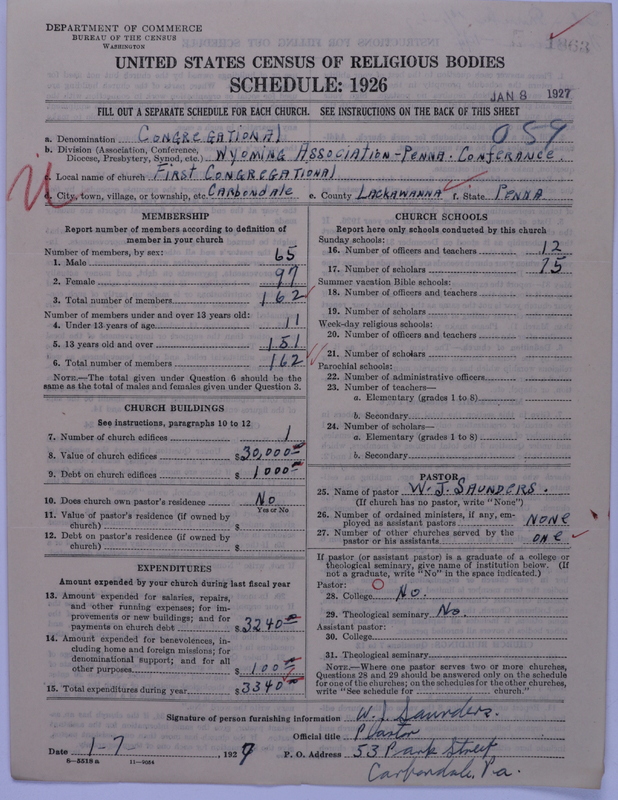 DEPARTMENT OF COMMERCE
BUREAU OF THE CENSUS
WASHINGTON
UNITED STATES CENSUS OF RELIGIOUS BODIES
SCHEDULE: 1926
JAN 8 1927
FILL OUT A SEPARATE SCHEDULE FOR EACH CHURCH. SEE INSTRUCTIONS ON THE BACK OF THIS SHEET
a. Denomination CONGREGATIONAL 059
b. Division (Association, Conference,
Diocese, Presbytery, Synod, etc.) WYOMING ASSOCIATION-PENNA. CONFERANCE.
c. Local name of church FIRST CONGREGATIONAL
d. City, town, village, or township, etc. CARBONDALE e. County LACKAWANNA f. State PENNA
MEMBERSHIP
Report number of members according to definition of
member in your church
Number of members, by sex:
1. Male 65
2. Female 97
3. Total number of members 162
Number of members under and over 13 years old:
4. Under 13 years of age 11
5. 13 years old and over 151
6. Total number of members 162
NOTE.—The total given under Question 6 should be the
same as the total of males and females given under Question 3.
CHURCH BUILDINGS
See instructions, paragraphs 10 to 12
7. Number of church edifices 1
8. Value of church edifices $30,000
9. Debt on church edifices $1000
10. Does church own pastor's residence No
Yes or No
11. Value of pastor's residence (if owned by
church) $
12. Debt on pastor's residence (if owned by
church) $
EXPENDITURES
Amount expended by your church during last fiscal year
13. Amount expended for salaries, repairs,
and other running expenses; for im-
provements or new buildings; and for
payments on church debt $3240
14. Amount expended for benevolences, in-
cluding home and foreign missions; for
denominational support; and for all
other purposes $100
15. Total expenditures during year $3340
CHURCH SCHOOLS
Report here only schools conducted by this church
Sunday schools:
16. Number of officers and teachers 12
17. Number of scholars 75
Summer vacation Bible schools:
18. Number of officers and teachers
19. Number of scholars
Week-day religious schools:
20. Number of officers and teachers
21. Number of scholars
Parochial schools:
22. Number of administrative officers
23. Number of teachers—
a. Elementary (grades 1 to 8)
b. Secondary
24. Number of scholars—
a. Elementary (grades 1 to 8)
b. Secondary
PASTOR
25. Name of pastor W. J. SAUNDERS.
(If church has no pastor, write "None")
26. Number of ordained ministers, if any, em-
ployed as assistant pastors NONE
27. Number of other churches served by the
pastor or his assistants ONE
If pastor (or assistant pastor) is a graduate of a college or
theological seminary, give name of institution below. (If
not a graduate, write "No" in the space indicated.)
Pastor:
28. College No.
29. Theological seminary No.
Assistant pastor:
30. College
31. Theological seminary
NOTE.—Where one pastor serves two or more churches,
Questions 28 and 29 should be answered only on the schedule
for one of the churches; on the schedules for the other churches,
write "See schedule for church."
Signature of person furnishing information W. J. Saunders.
Official title Pastor
Date 1-7, 1927 P. O. Address 53 Park Street
8-5518 a 11-9034 Carbondale, Pa.